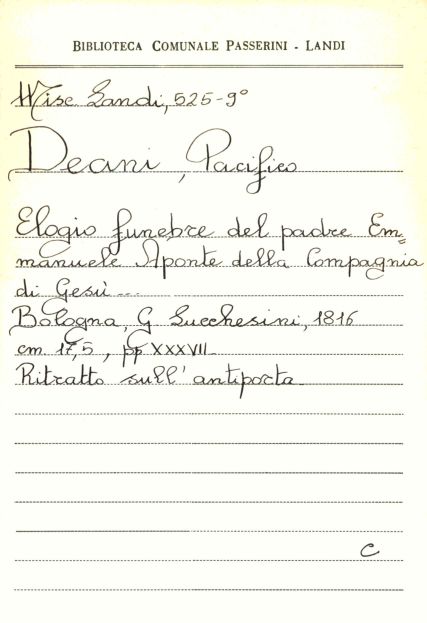 BIBLIOTECA COMUNALE PASSERINI - LANDI
Misc. Landi, 525-9°
Deani, Pacifico
Elogio funebre del padre Em=
manuele Aponte della Compagnia
di Gesù...
Bologna, G. Lucchesini, 1816
cm. 17,5, pp. XXXVII
Ritratto sull'antiporta
C